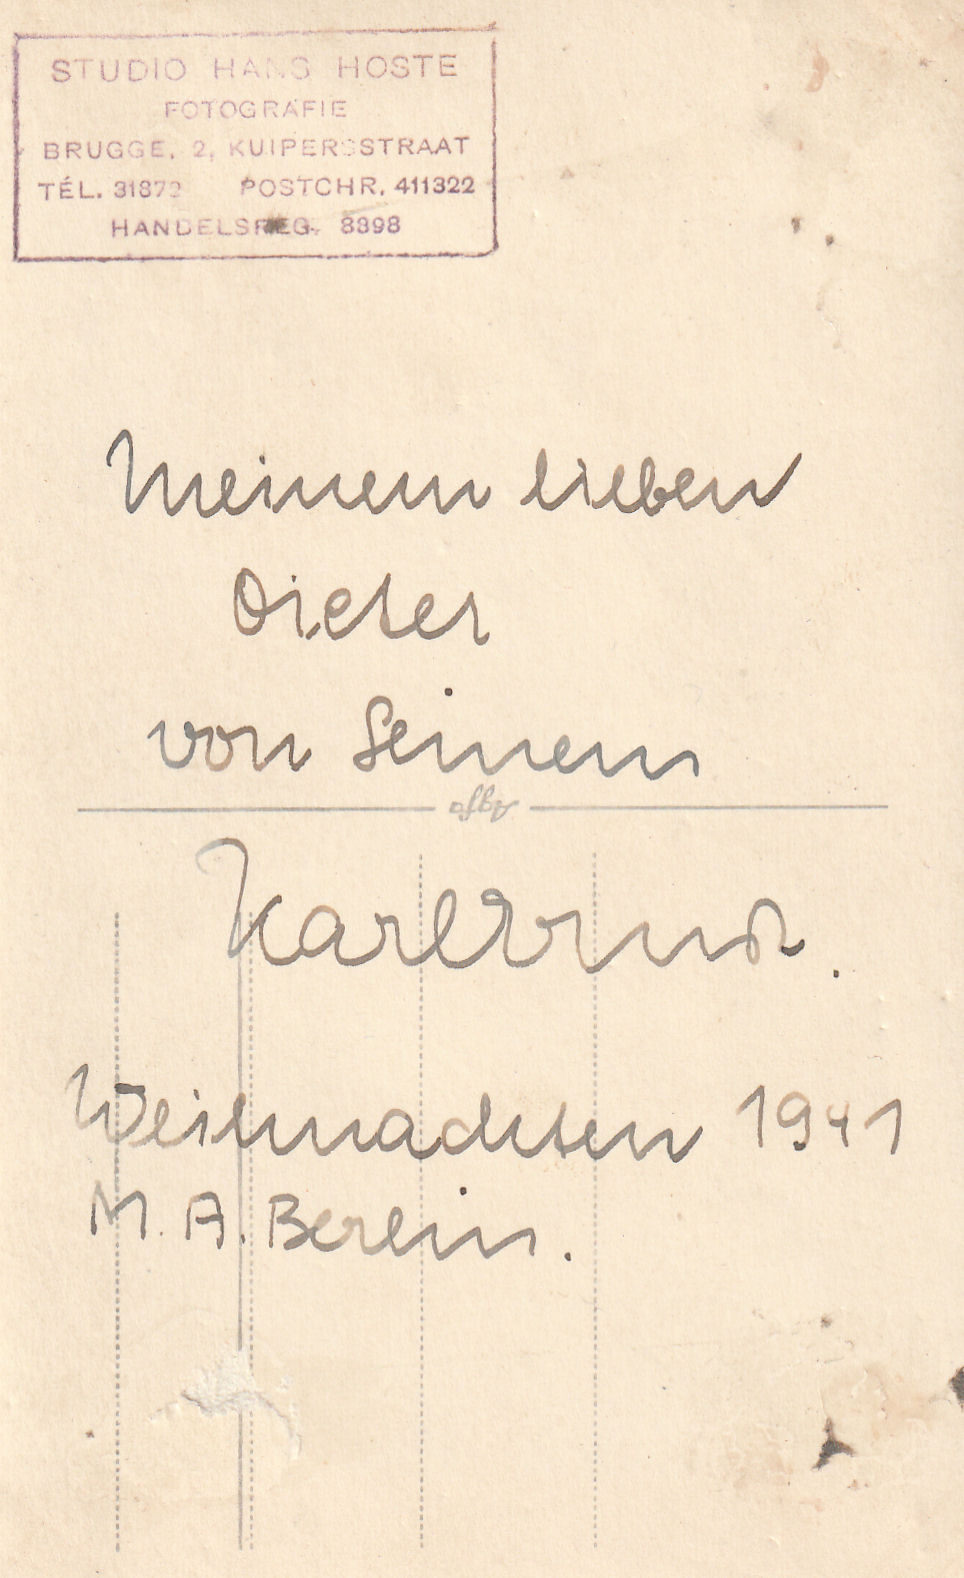 STUDIO HANS HOSTE
FOTOGRAFIE
BRUGGE, 2, KUIPERSSTRAAT
TÉL. 31872 POSTCHR. 411322
HANDELSREG. 8898
Meinem lieben
Dieter
von Seinem
Agfa
Karl
Weihnachten 1941
M. A. Berlin.